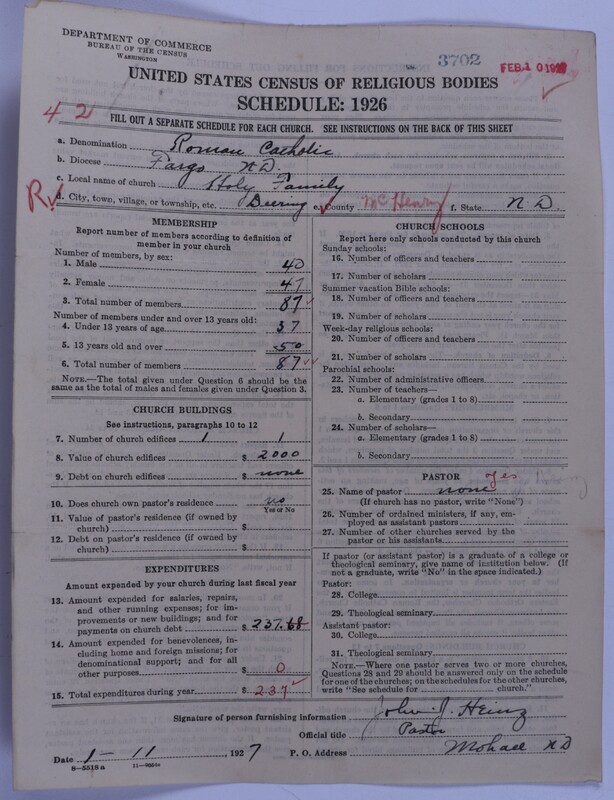 DEPARTMENT OF COMMERCE
BUREAU OF THE CENSUS
WASHINGTON
3702
FEB 10 1927
UNITED STATES CENSUS OF RELIGIOUS BODIES
SCHEDULE: 1926
42
FILL OUT A SEPARATE SCHEDULE FOR EACH CHURCH. SEE INSTRUCTIONS ON THE BACK OF THIS SHEET
a. Denomination Roman Catholic
b. Diocese Fargo N.D.
c. Local name of church Holy Family
R d. City, town, village, or township, etc. Deering e. County McHenry f. State N.D.
MEMBERSHIP
Report number of members according to definition of member in your church
Number of members, by sex:
1. Male 40
2. Female 47
3. Total number of members 87
Number of members under and over 13 years old:
4. Under 13 years of age 37
5. 13 years old and over 50
6. Total number of members 87
NOTE.—The total given under Question 6 should be the same as the total of males and females given under Question 3.
CHURCH BUILDINGS
See instructions, paragraphs 10 to 12
7. Number of church edifices 1 1
8. Value of church edifices $ 2000
9. Debt on church edifices $ none
10. Does church own pastor's residence no
Yes or No
11. Value of pastor's residence (if owned by church) $
12. Debt on pastor's residence (if owned by church) $
EXPENDITURES
Amount expended by your church during last fiscal year
13. Amount expended for salaries, repairs, and other running expenses; for improvements or new buildings; and for payments on church debt $ 237.68
14. Amount expended for benevolences, including home and foreign missions; for denominational support; and for all other purposes $ 0
15. Total expenditures during year $ 237
CHURCH SCHOOLS
Report here only schools conducted by this church
Sunday schools:
16. Number of officers and teachers
17. Number of scholars
Summer vacation Bible schools:
18. Number of officers and teachers
19. Number of scholars
Week-day religious schools:
20. Number of officers and teachers
21. Number of scholars
Parochial schools:
22. Number of administrative officers
23. Number of teachers—
a. Elementary (grades 1 to 8)
b. Secondary
24. Number of scholars—
a. Elementary (grades 1 to 8)
b. Secondary
PASTOR yes
25. Name of pastor none
(If church has no pastor, write "None")
26. Number of ordained ministers, if any, employed as assistant pastors
27. Number of other churches served by the pastor or his assistants
If pastor (or assistant pastor) is a graduate of a college or theological seminary, give name of institution below. (If not a graduate, write "No" in the space indicated.)
Pastor:
28. College
29. Theological seminary
Assistant pastor:
30. College
31. Theological seminary
NOTE.—Where one pastor serves two or more churches, Questions 28 and 29 should be answered only on the schedule for one of the churches; on the schedules for the other churches, write "See schedule for church."
Signature of person furnishing information John J. Heinz
Official title Pastor
Date 1-11, 1927 P. O. Address Mohall N D
8-5518a